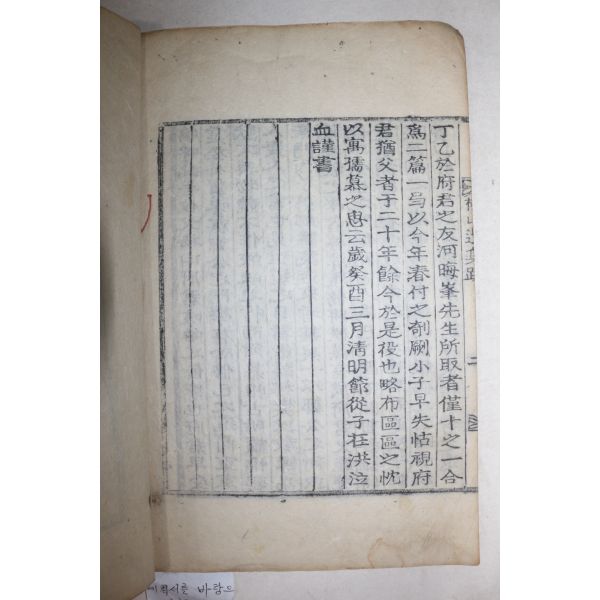 丁乙於府君之友河晦峯先生所取者僅十之一合
爲二篇一局以今年春付之剞劂小子早失怙視府
君猶父者于二十年餘今於是役也略布區區之忱
以寓孺慕之思云歲癸酉三月淸明節從子在洪泣
血謹書
바탕으